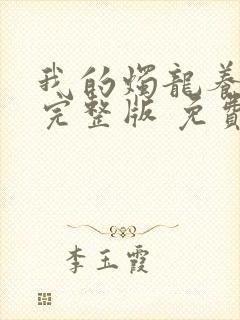 我的燭龍養
完整版 免費
李玉霞